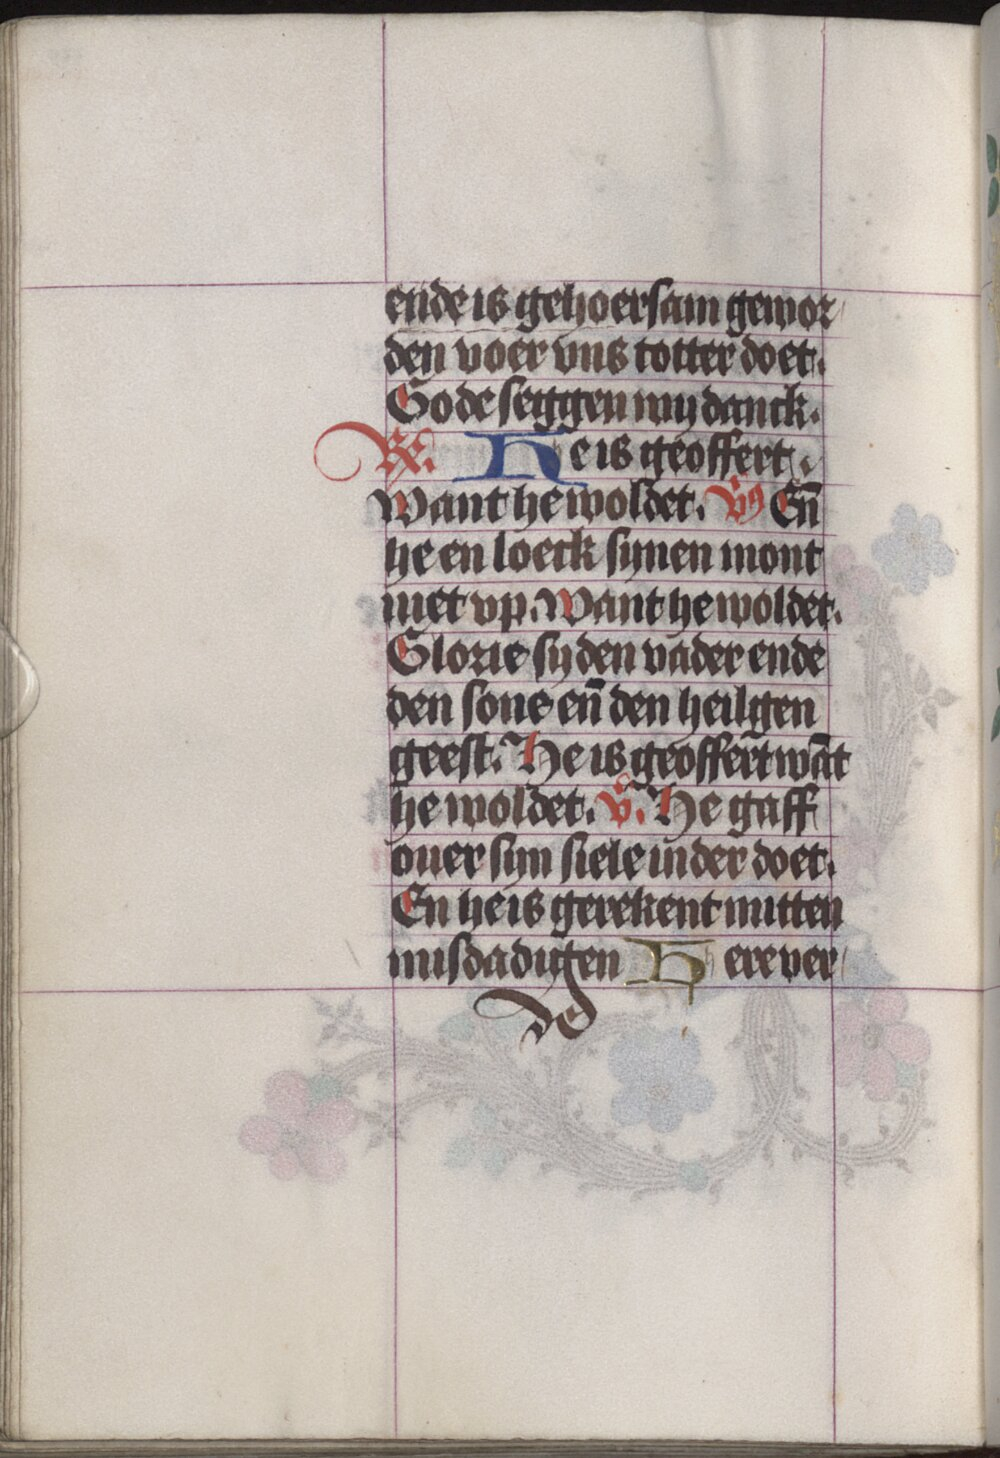 ende is gehoersam gewor
den voer vns totter doet.
Gode seggen wy danck.
R. He is geoffert.
Want he woldet. V9 En̄
he en loeck synen mont
niet vp. Want he woldet.
Glorie sy den vader ende
den sone en̄ den heilgen
geest. He is geoffert wāt
he woldet. V. He gaff
ouer syn siele in der doet.
En he is gerekent mitten
misdadigen Here ver
de